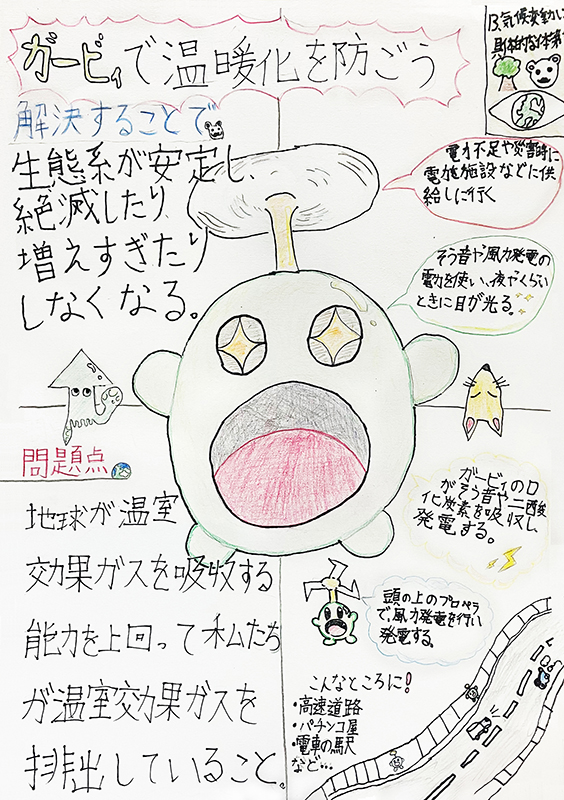 ガービィで温暖化を防ごう
13.気候変動に
具体的な対策
解決することで
生態系が安定し、
絶滅したり、
増えすぎたり
しなくなる。
電力不足や災害時に
電施施設などに供
給しに行く
そう音や風力発電の
電力を使い、夜やくらい
ときに目が光る。
問題点
地球が温室
効果ガスを吸収する
能力を上回って私たち
が温室効果ガスを
排出していること。
ガービィの口
がそう音や二酸
化炭素を吸収し、
発電する。
頭の上のプロペラ
で、風力発電を行い
発電する。
こんなところに!
・高速道路
・パチンコ屋
・電車の駅
など…